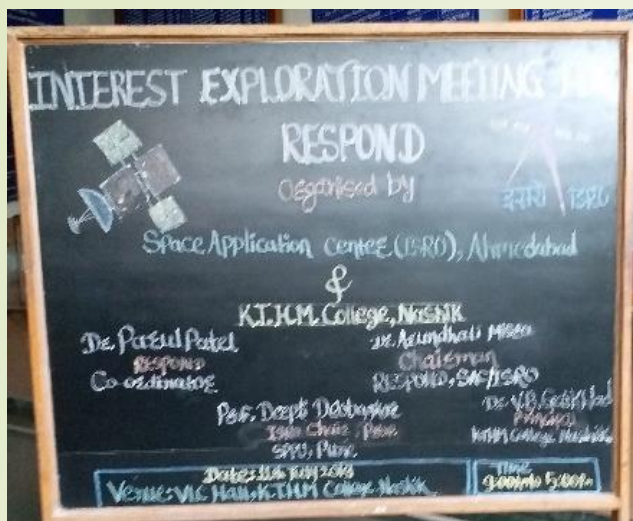 INTEREST EXPLORATION MEETING
RESPOND
Organised by
इसरो ISRO
Space Application Center (ISRO), Ahmedabad
&
K.T.H.M. College, Nashik
Dr. Parul Patel
RESPOND
Co-ordinator
Dr. Arundhati Misra
Chairman
RESPOND, SAC/ISRO
Prof. Deepti Deobagkar
ISRO Chair, Pune
SPPU, Pune.
Dr. V.B. Gaikwad
Principal
KTHM College Nashik
Date: July
Venue: VLC Hall, K.T.H.M College, Nashik
Time
9:00 to 5:00